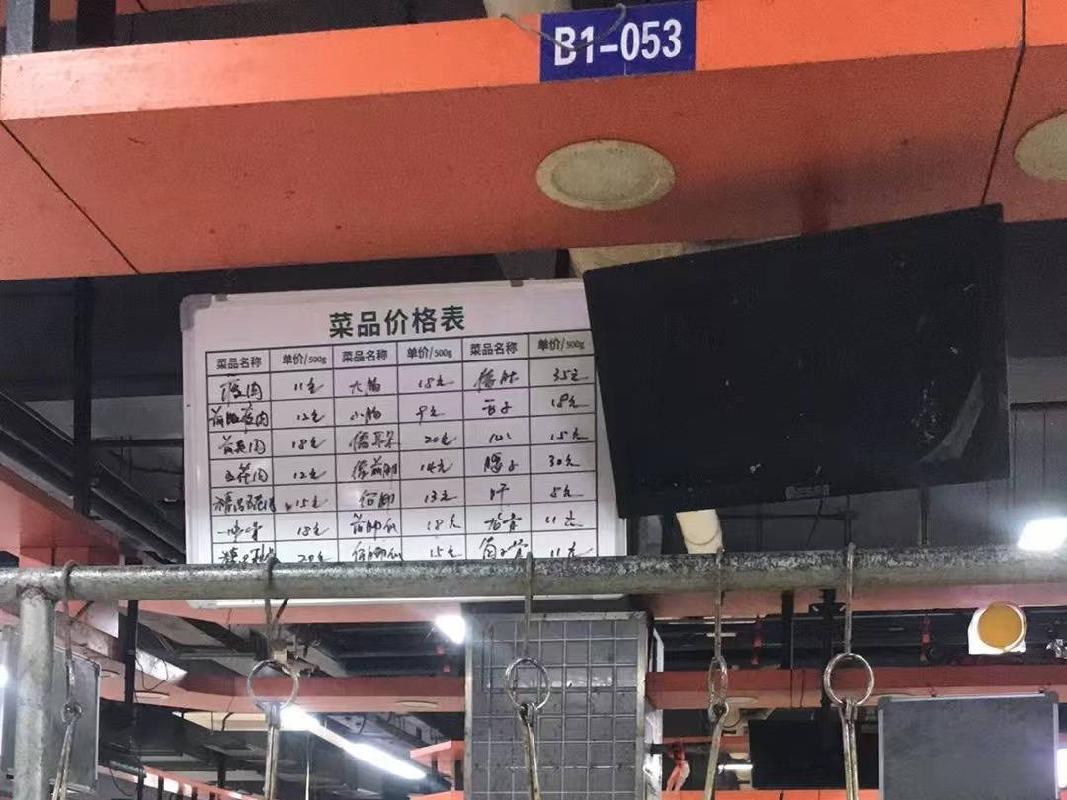 B1-053
菜品价格表
菜品名称 单价/500g 菜品名称 单价/500g 菜品名称 单价/500g
瘦肉 11元 大肠 18元 猪肚 35元
12元 小肠 9元 舌子 18元
前夹肉 18元 猪耳朵 20元 心 15元
五花肉 12元 猪前脚 14元 腰子 30元
精品五花肉 15元 后脚 13元 肝 5元
18元 前脚爪 18元 龙骨 11元
20元 后脚爪 15元 筒子骨 11元